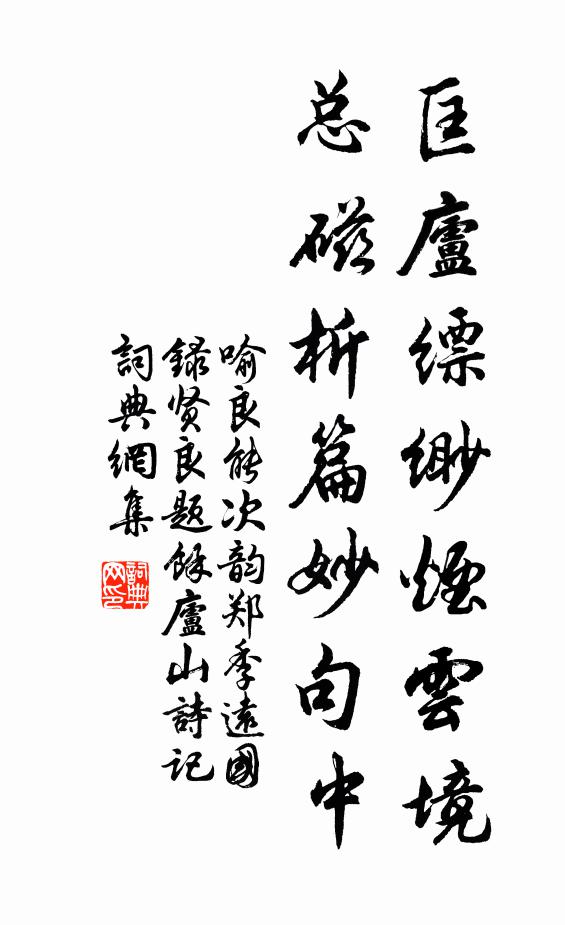 匡廬縹緲煙雲境
总磁析篇妙句中
喻良能次韵郑季遠國
録贤良题餘廬山詩记
詞典網集
詞典网印